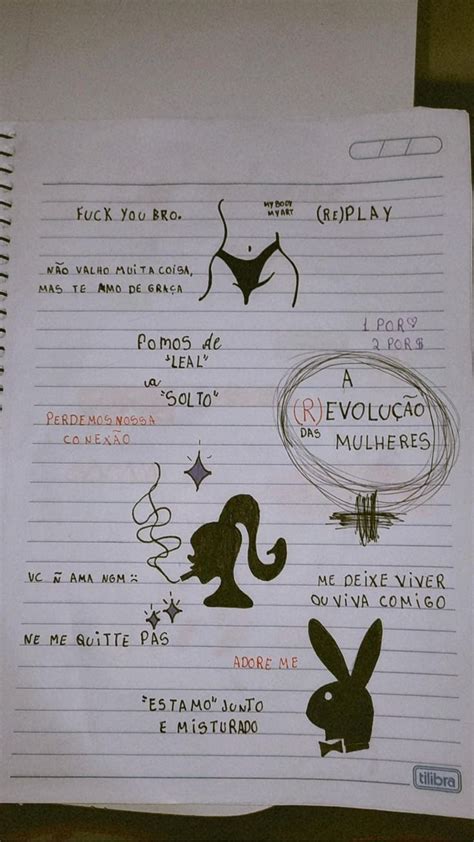 FUCK YOU BRO.
MY BODY
MY ART
(RE)PLAY
NÃO VALHO MUITA COISA,
MAS TE AMO DE GRAÇA
1 POR ♡
2 POR $
FOMOS de
"LEAL"
a
"SOLTO"
A
(R)EVOLUÇÃO
DAS MULHERES
PERDEMOS NOSSA
CONEXÃO
VC Ñ AMA NGM :(
ME DEIXE VIVER
OU VIVA COMIGO
NE ME QUITTE PAS
ADORE ME
"ESTAMO" JUNTO
E MISTURADO
tilibra